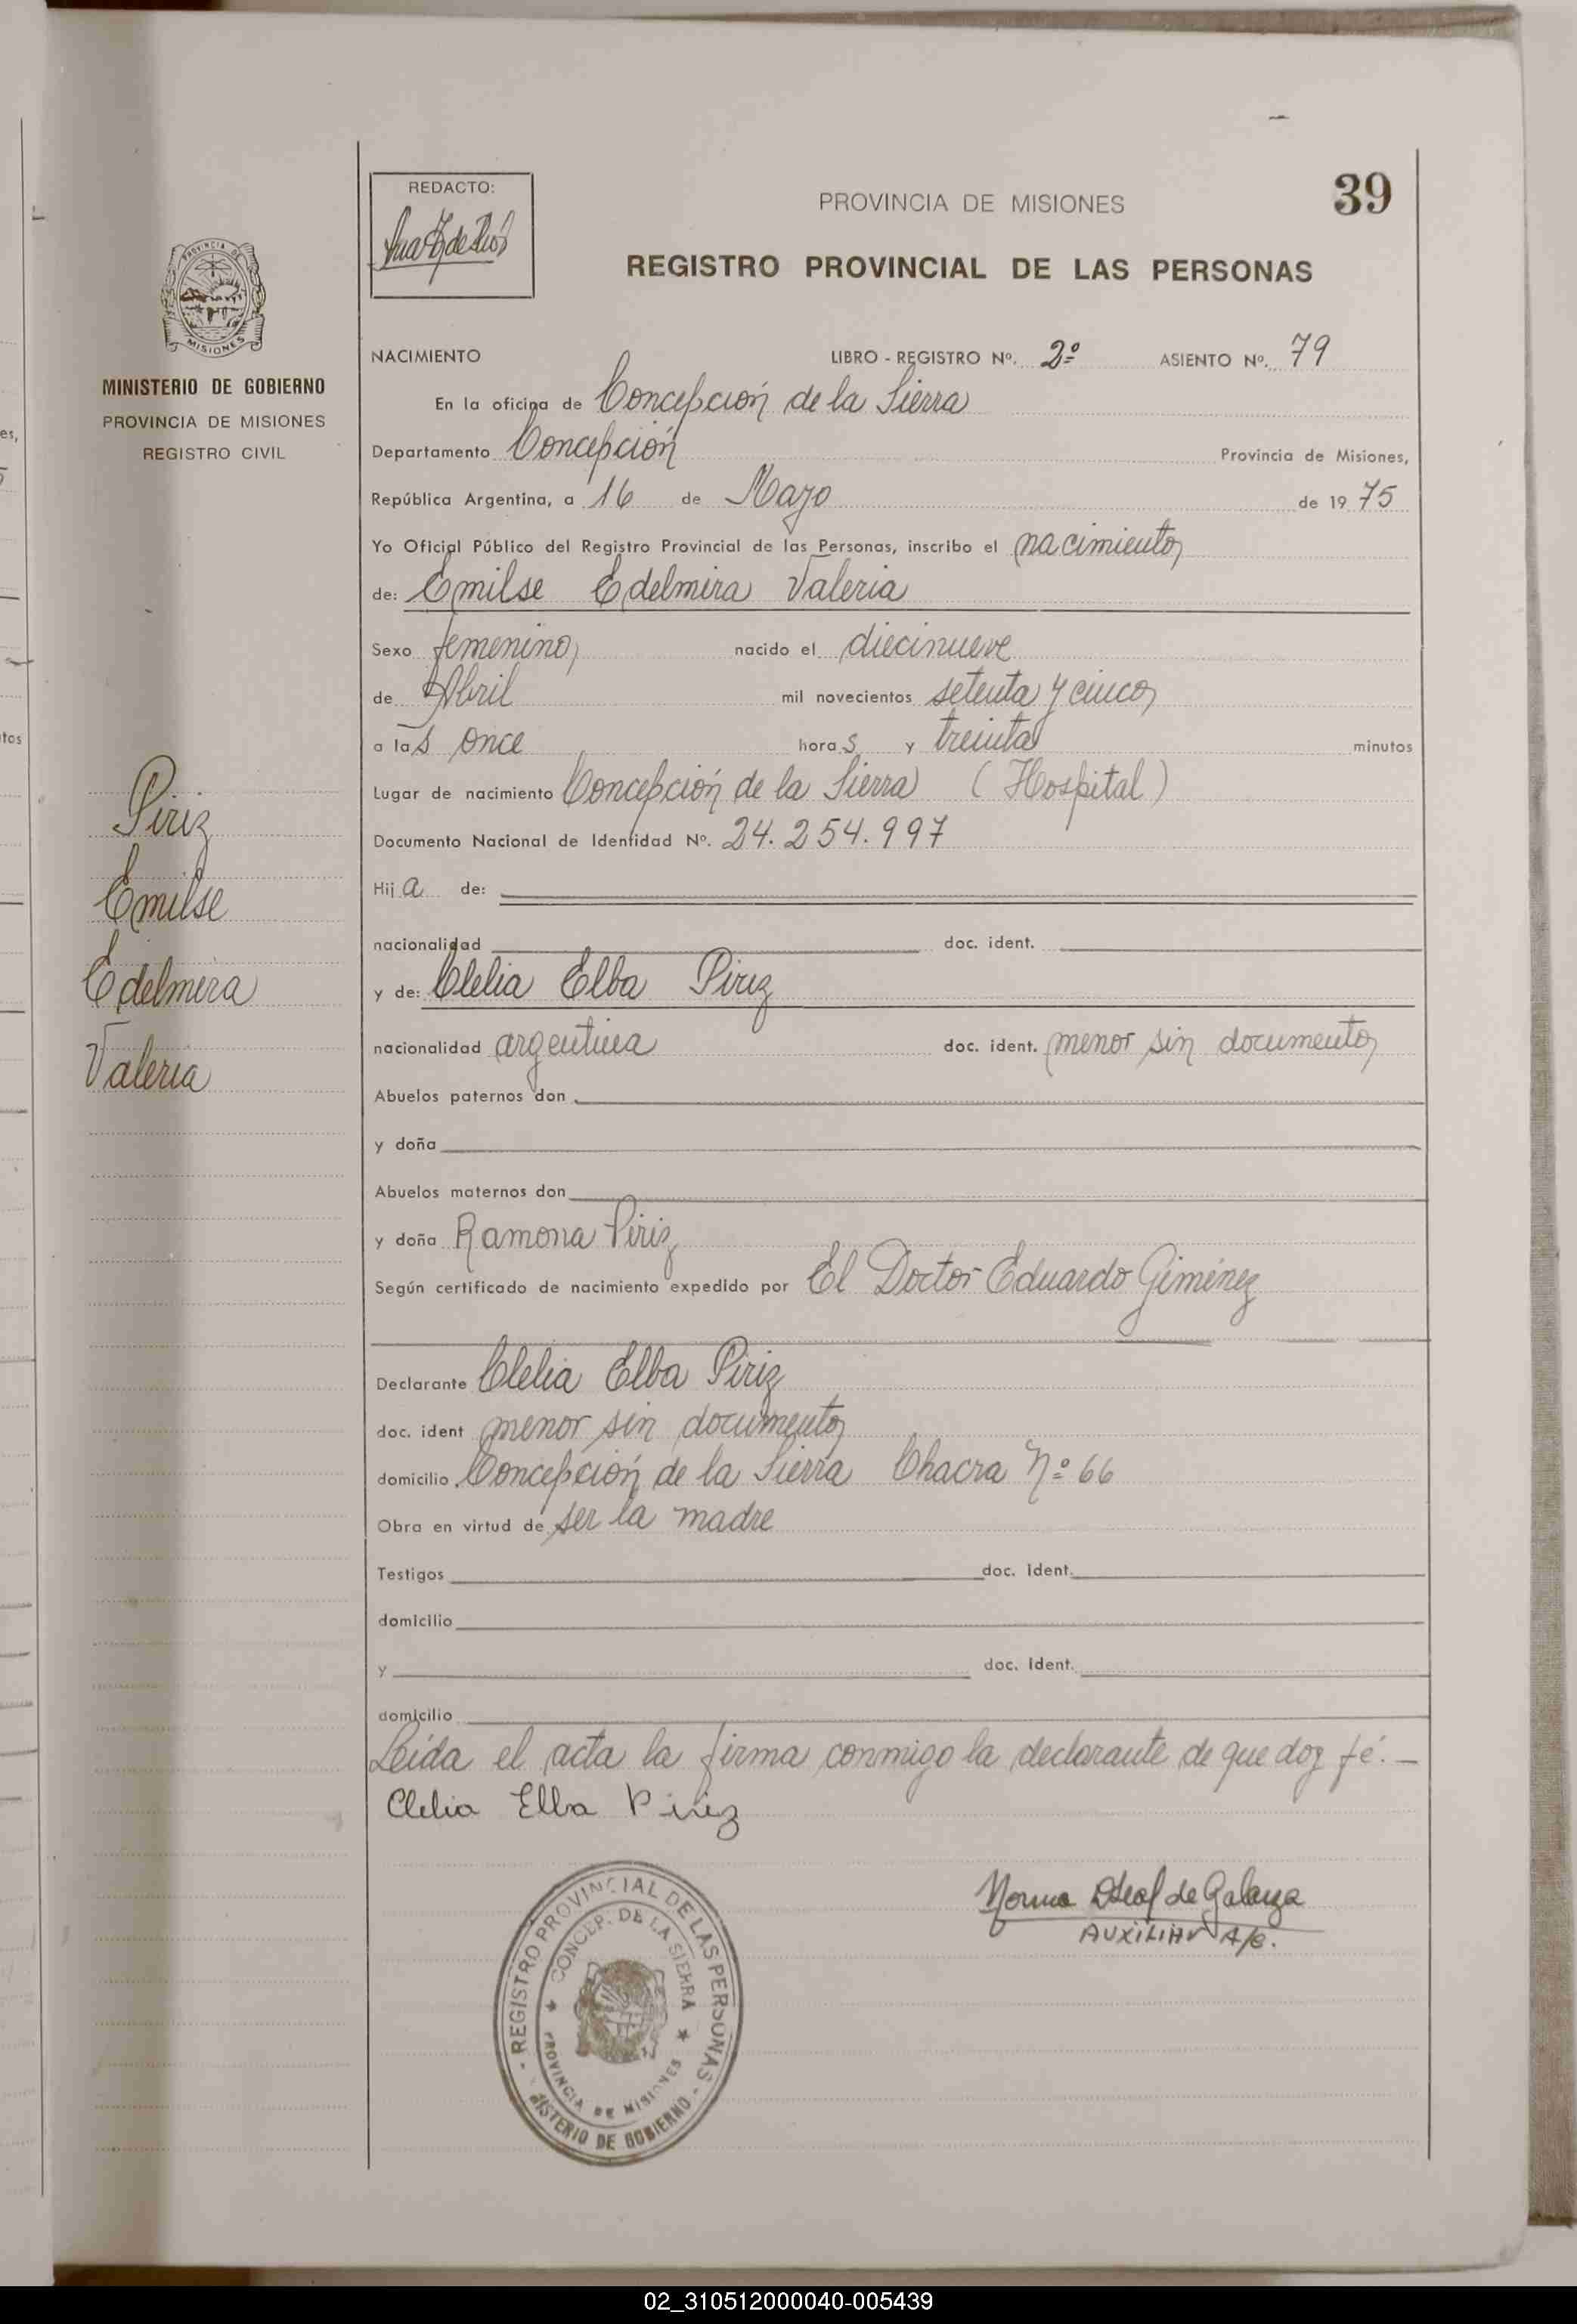 39
REDACTO:
PROVINCIA DE MISIONES
REGISTRO PROVINCIAL DE LAS PERSONAS
PROVINCIA DE
MISIONES
MINISTERIO DE GOBIERNO
PROVINCIA DE MISIONES
REGISTRO CIVIL
Piriz
Emilse
Edelmira
Valeria
NACIMIENTO LIBRO - REGISTRO Nº. 2º ASIENTO Nº. 79
En la oficina de Concepción de la Sierra
Departamento Concepción Provincia de Misiones,
República Argentina, a 16 de Mayo de 1975
Yo Oficial Público del Registro Provincial de las Personas, inscribo el nacimiento
de: Emilse Edelmira Valeria
Sexo femenino, nacido el diecinueve
de Abril mil novecientos setenta y cinco,
a las once horas y treinta minutos
Lugar de nacimiento Concepción de la Sierra (Hospital)
Documento Nacional de Identidad Nº. 24.254.997
Hija de:
nacionalidad doc. ident.
y de: Clelia Elba Piriz
nacionalidad argentina doc. ident. menor sin documento,
Abuelos paternos don
y doña
Abuelos maternos don
y doña Ramona Piriz
Según certificado de nacimiento expedido por El Doctor Eduardo Giménez
Declarante Clelia Elba Piriz
doc. ident menor sin documento,
domicilio Concepción de la Sierra Chacra Nº 66
Obra en virtud de ser la madre
Testigos doc. Ident.
domicilio
y doc. Ident.
domicilio
Leída el acta la firma conmigo la declarante de que doy fé. —
Clelia Elba Piriz
Norma de Galarza
AUXILIAR A/C.
- REGISTRO PROVINCIAL DE LAS PERSONAS -
CONCEP. DE LA SIERRA
PROVINCIA DE MISIONES
NISTERIO DE GOBIERNO
02_310512000040-005439